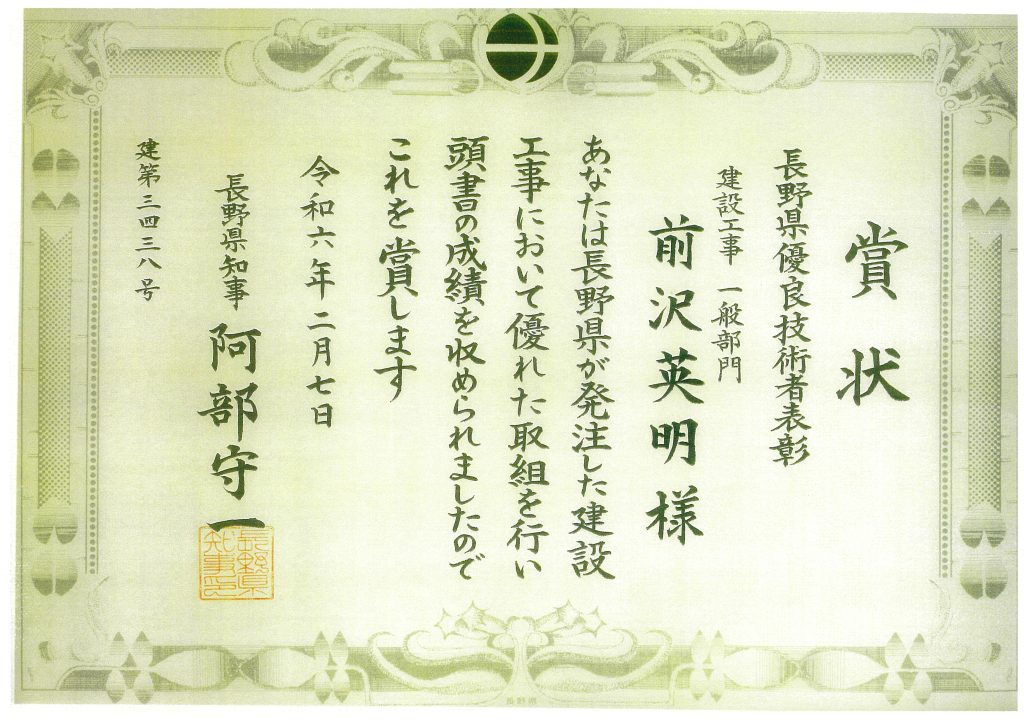 賞状
長野県優良技術者表彰
建設工事 一般部門
前沢英明様
あなたは長野県が発注した建設
工事において優れた取組を行い
頭書の成績を収められましたので
これを賞します
令和六年二月七日
長野県知事 阿部守一
長野県
知事印
建第三四三八号
長野県